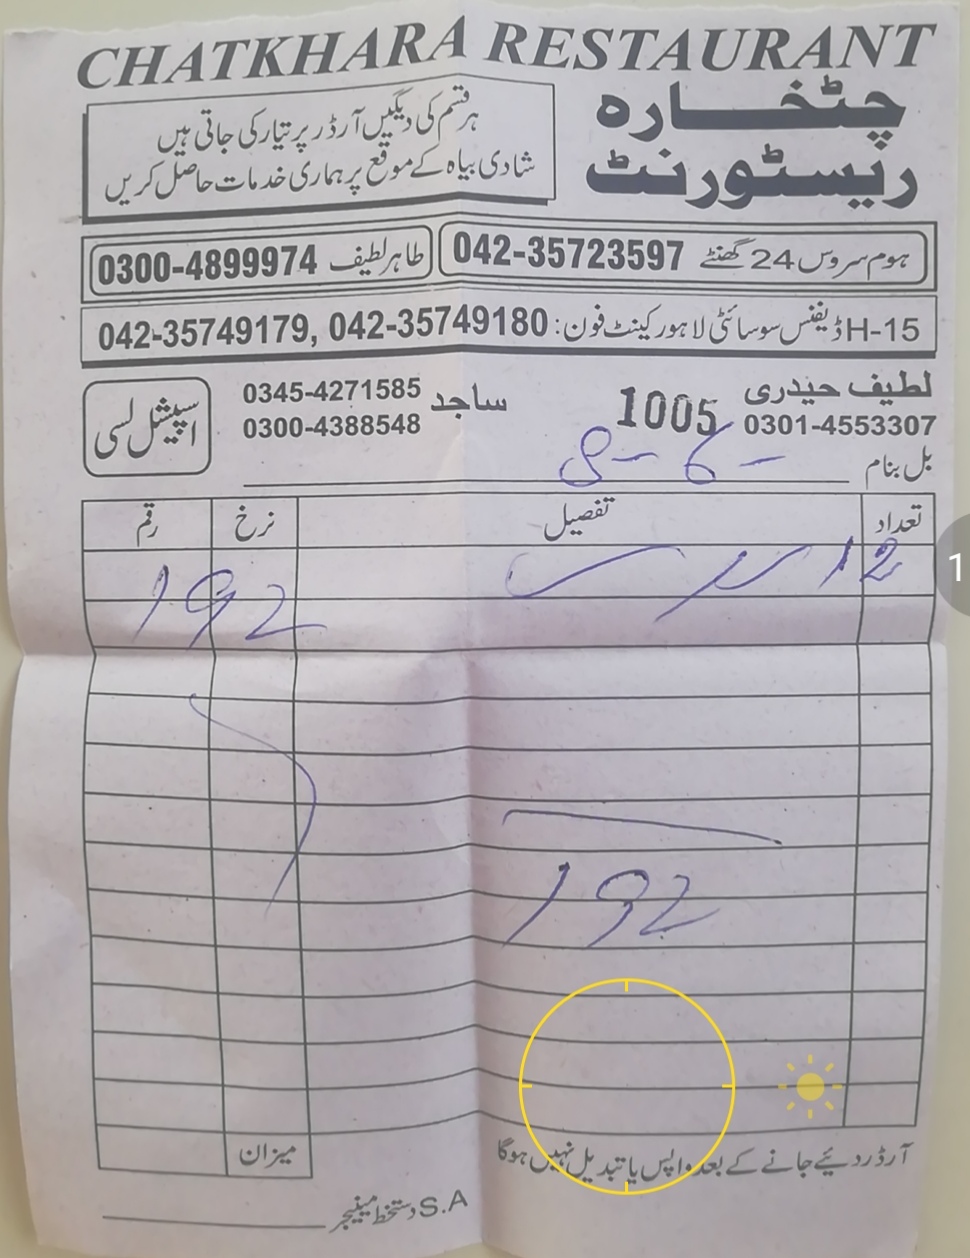 CHATKHARA RESTAURANT
چٹخارہ
ریسٹورنٹ
ہر قسم کی دیگیں آرڈر پر تیار کی جاتی ہیں
شادی بیاہ کے موقع پر ہماری خدمات حاصل کریں
ہوم سروس 24 گھنٹے 042-35723597
طاہر لطیف 0300-4899974
H-15 ڈیفنس سوسائٹی لاہور کینٹ فون: 042-35749180 ,042-35749179
لطیف حیدری
0301-4553307
1005
ساجد 0345-4271585
0300-4388548
اسپیشل لسی
بل بنام
تعداد تفصیل نرخ رقم
12 192
192
میزان
آرڈر دئیے جانے کے بعد واپس یا تبدیل نہیں ہوگا
S.A دستخط مینیجر
1